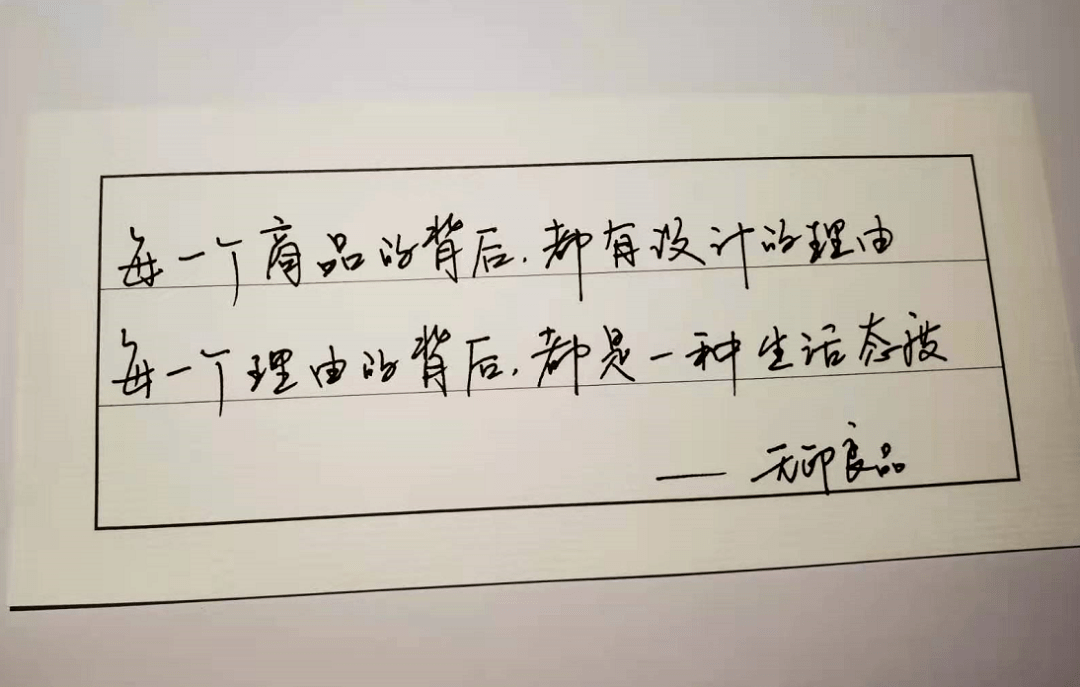 每一个商品的背后,都有设计的理由
每一个理由的背后,都是一种生活态度
——无印良品